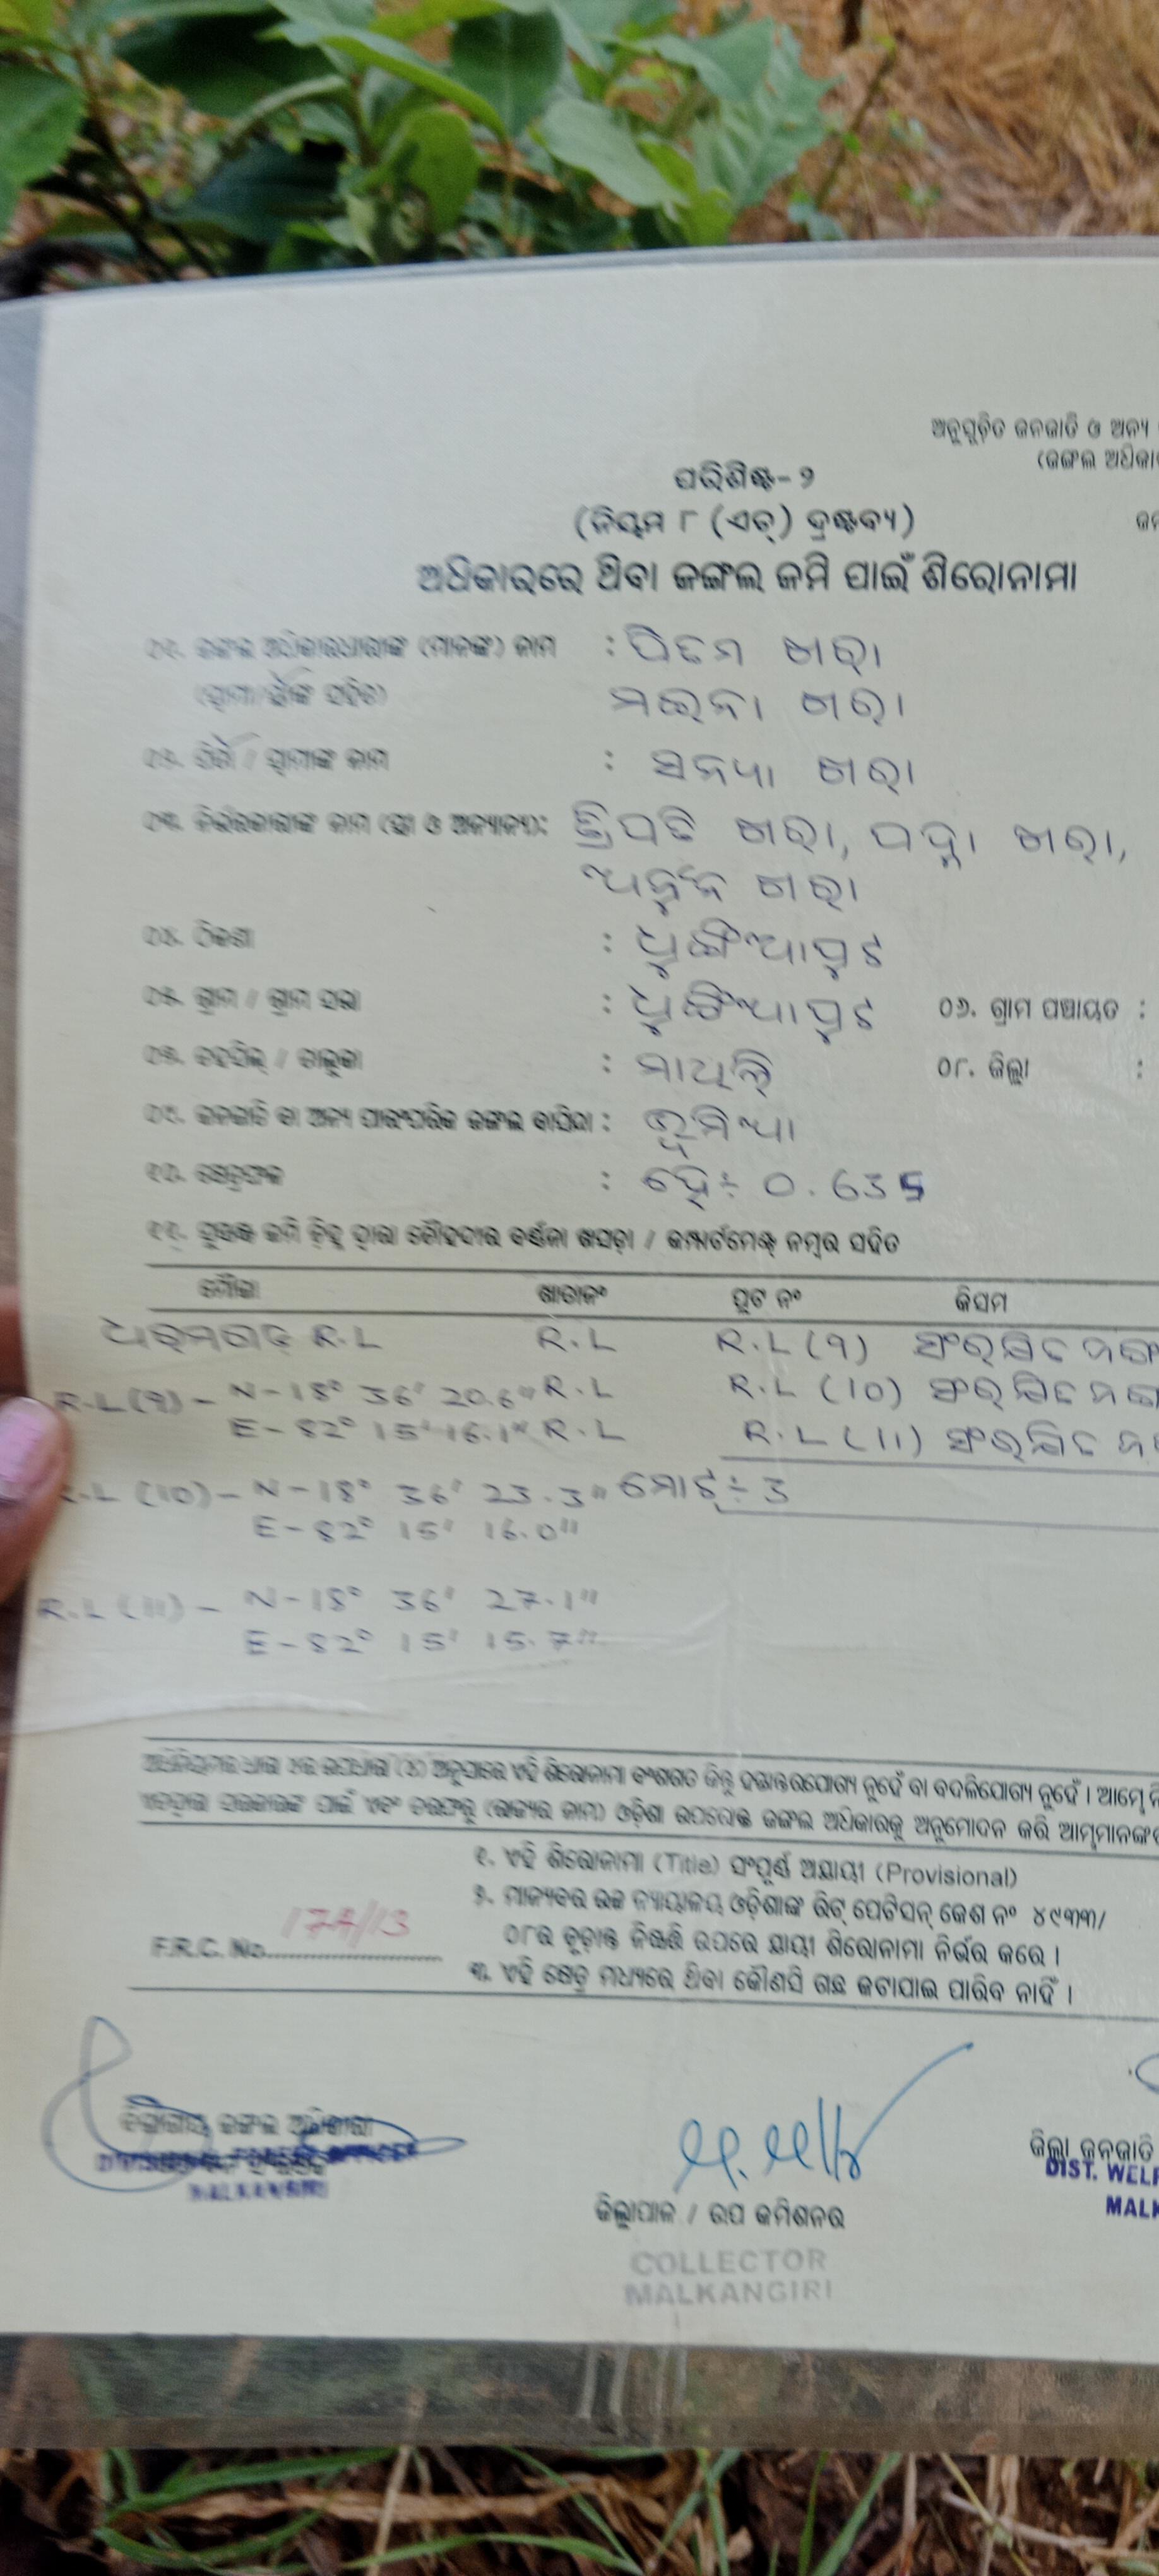 ଅନୁସୂଚିତ ଜନଜାତି ଓ ଅନ୍ୟ
(ଜଙ୍ଗଲ ଅଧିକାର
ପରିଶିଷ୍ଟ- ୨
(ନିୟମ ୮ (ଏଚ୍) ଦ୍ରଷ୍ଟବ୍ୟ)
ଅଧିକାରରେ ଥିବା ଜଙ୍ଗଲ ଜମି ପାଇଁ ଶିରୋନାମା
୦୧. ଜଙ୍ଗଲ ଅଧିକାରଧାରୀଙ୍କ (ମାନଙ୍କ) ନାମ : ପିତମ ଖରା
(ସ୍ୱାମୀ/ସ୍ତ୍ରୀଙ୍କ ସହିତ) ମଇନା ଖରା
୦୨. ପିତା / ସ୍ୱାମୀଙ୍କ ନାମ : ସନ୍ୟା ଖରା
୦୩. ନିର୍ଭରକାରୀଙ୍କ ନାମ (ସ୍ତ୍ରୀ ଓ ଅନ୍ୟାନ୍ୟ): ତ୍ରିପତି ଖରା, ପଦ୍ମା ଖରା,
ଅର୍ଜୁନ ଖରା
୦୪. ଠିକଣା : ଧୁଙ୍ଗିଆପୁଟ
୦୫. ଗ୍ରାମ / ଗ୍ରାମ ସଭା : ଧୁଙ୍ଗିଆପୁଟ ୦୬. ଗ୍ରାମ ପଞ୍ଚାୟତ :
୦୭. ତହସିଲ୍ / ତାଲୁକା : ମାଥିଲି ୦୮. ଜିଲ୍ଲା :
୦୯. ଜନଜାତି ବା ଅନ୍ୟ ପାରଂପରିକ ଜଙ୍ଗଲ ବାସିନ୍ଦା : ଭୂମିଆ
୧୦. କ୍ଷେତ୍ରଫଳ : ହେ÷ 0.635
୧୧. ସୁରକ୍ଷା ଜମି ଚିହ୍ନ ଦ୍ୱାରା ଚୌହଦୀର ବର୍ଣ୍ଣନା ଖସଡ଼ା / କମ୍ପାର୍ଟମେଣ୍ଟ ନମ୍ବର ସହିତ
ମୌଜା ଖାତାନଂ ପ୍ଲଟ ନଂ କିସମ
R.L R.L R.L (9) ସଂରକ୍ଷିତ
R.L(9) - N-18° 36' 20.6" R.L R.L (10) ସଂରକ୍ଷିତ
E-82° 15' 16.1" R.L R.L (11) ସଂରକ୍ଷିତ
R.L (10) - N-18° 36' 23.3" ମୋଟ÷ 3
E-82° 15' 16.0"
R.L (11) - N-18° 36' 27.1"
E-82° 15' 15.7"
ଅନୁସାରେ ଏହି ଶିରୋନାମା ବଂଶଗତ କିନ୍ତୁ ହସ୍ତାନ୍ତରଯୋଗ୍ୟ ନୁହେଁ ବା ବଦଳିଯୋଗ୍ୟ ନୁହେଁ । ଆମ୍ଭେ
ଏତଦ୍ଦ୍ୱାରା ସରକାରଙ୍କ ପାଇଁ ଏବଂ ତରଫରୁ (ରାଜ୍ୟର ନାମ) ଓଡ଼ିଶା ଉପରୋକ୍ତ ଜଙ୍ଗଲ ଅଧିକାରକୁ ଅନୁମୋଦନ କରି ଆମ୍ଭମାନଙ୍କର
୧. ଏହି ଶିରୋନାମା (Title) ସଂପୂର୍ଣ୍ଣ ଅସ୍ଥାୟୀ (Provisional)
୨. ମାନ୍ୟବର ଉଚ୍ଚ ନ୍ୟାୟାଳୟ ଓଡ଼ିଶାଙ୍କ ରିଟ୍ ପେଟିସନ୍ କେଶ ନଂ ୪୯୩୩/
୦୮ର ଚୂଡ଼ାନ୍ତ ନିଷ୍ପତ୍ତି ଉପରେ ସ୍ଥାୟୀ ଶିରୋନାମା ନିର୍ଭର କରେ ।
F.R.C. No. 
୩. ଏହି କ୍ଷେତ୍ର ମଧ୍ୟରେ ଥିବା କୌଣସି ଗଛ କଟାଯାଇ ପାରିବ ନାହିଁ ।
ଜଙ୍ଗଲ ଅଧିକାରୀ
DIVISIONAL FOREST OFFICER
MALKANGIRI
ଜିଲ୍ଲାପାଳ / ଉପ କମିଶନର
COLLECTOR
MALKANGIRI
ଜିଲ୍ଲା ଜନଜାତି
DIST. WELF
MALK